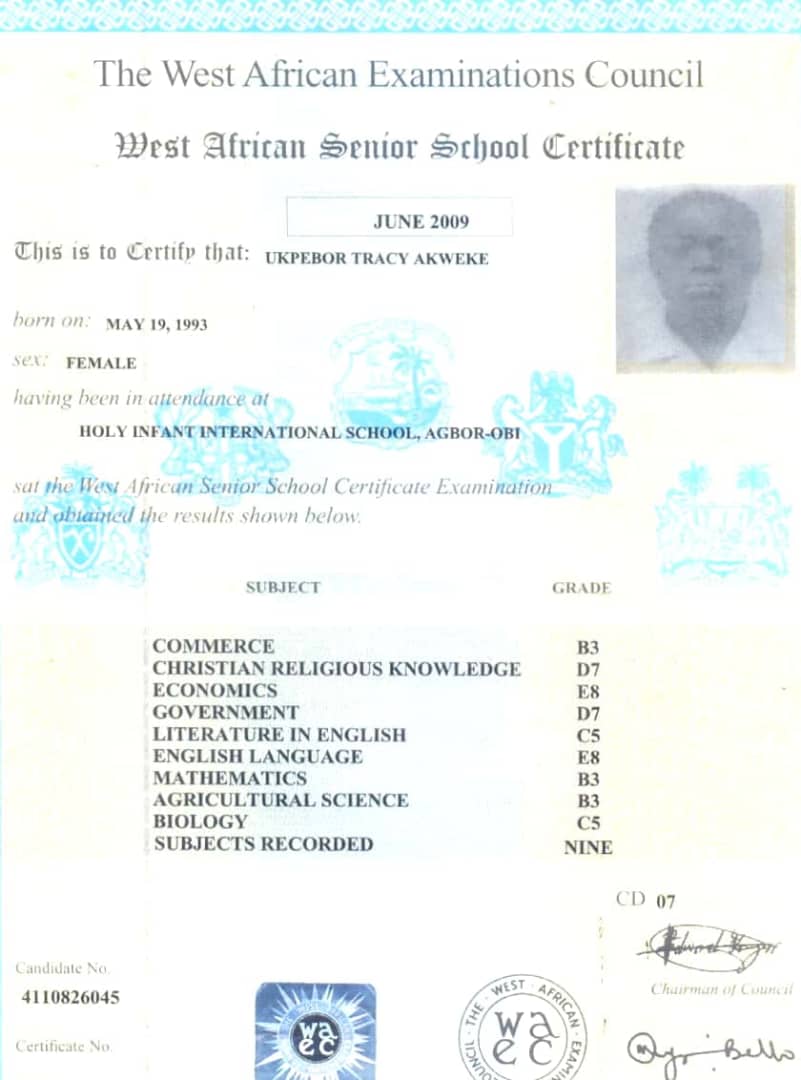 The West African Examinations Council
West African Senior School Certificate
JUNE 2009
This is to Certify that: UKPEBOR TRACY AKWEKE
born on: MAY 19, 1993
sex: FEMALE
having been in attendance at
HOLY INFANT INTERNATIONAL SCHOOL, AGBOR-OBI
sat the West African Senior School Certificate Examination
and obtained the results shown below.
SUBJECT GRADE
COMMERCE B3
CHRISTIAN RELIGIOUS KNOWLEDGE D7
ECONOMICS E8
GOVERNMENT D7
LITERATURE IN ENGLISH C5
ENGLISH LANGUAGE E8
MATHEMATICS B3
AGRICULTURAL SCIENCE B3
BIOLOGY C5
SUBJECTS RECORDED NINE
CD 07
Candidate No.
4110826045
Chairman of Council
Certificate No.
waec
THE WEST AFRICAN
COUNCIL
waec
Bello